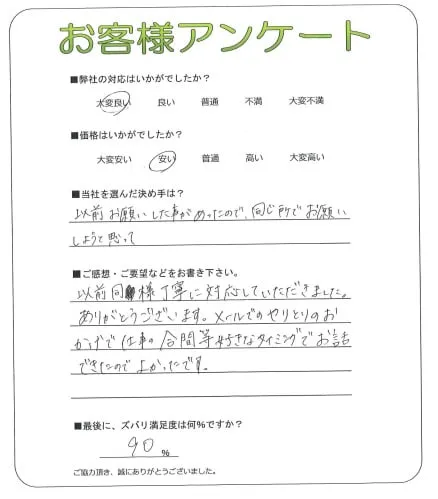 お客様アンケート
■弊社の対応はいかがでしたか？
大変良い 良い 普通 不満 大変不満
■価格はいかがでしたか？
大変安い 安い 普通 高い 大変高い
■当社を選んだ決め手は？
以前お願いした事があったので、同じ所でお願い
しようと思って
■ご感想・ご要望などをお書き下さい。
以前同様丁寧に対応していただきました。
ありがとうございます。メールでのやりとりのお
かげで仕事の合間等好きなタイミングでお話
できたのでよかったです。
■最後に、ズバリ満足度は何％ですか？
90 %
ご協力頂き、誠にありがとうございました。